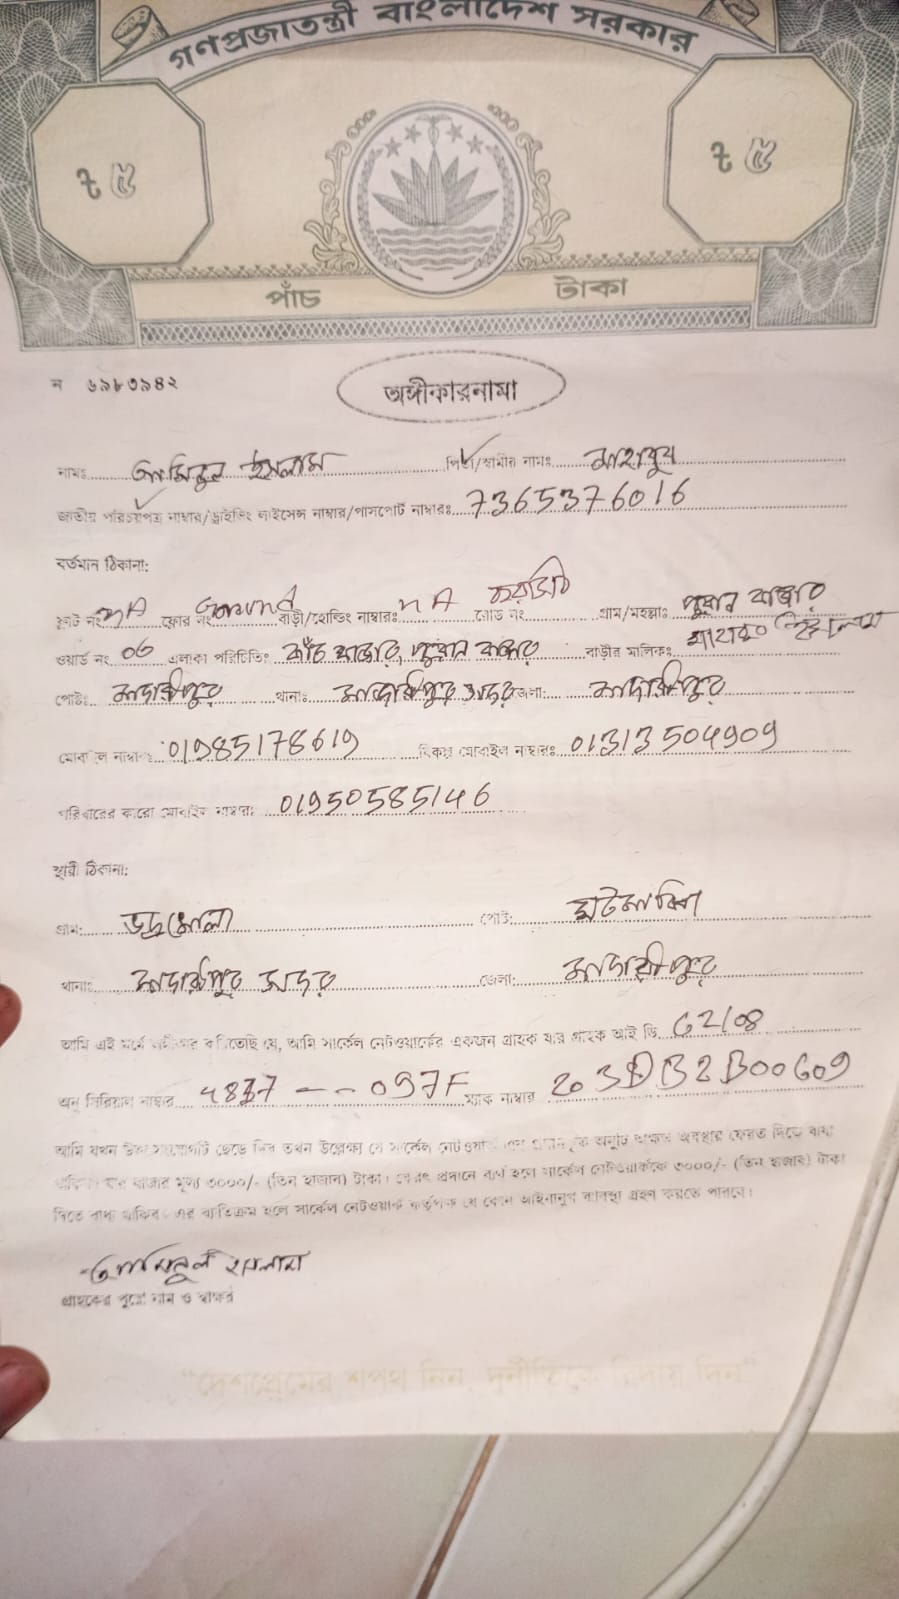 গণপ্রজাতন্ত্রী বাংলাদেশ সরকার
৳ ৫ ৳ ৫
পাঁচ টাকা
ন ৬৯৮৩৯৪২
অঙ্গীকারনামা
নামঃ আমিনুল ইসলাম পিতা/স্বামীর নামঃ মাহাবুব
জাতীয় পরিচয়পত্র নাম্বার/ড্রাইভিং লাইসেন্স নাম্বার/পাসপোর্ট নাম্বারঃ 7365376016
বর্তমান ঠিকানা:
ফ্লাট নং NA ফ্লোর নং Ground বাড়ী/হোল্ডিং নাম্বারঃ NA রোড নং গ্রাম/মহল্লাঃ পুরান বাজার
ওয়ার্ড নং 06 এলাকা পরিচিতিঃ কাঁচা বাজার, পুরান বাজার বাড়ীর মালিকঃ ইসলাম
পোষ্টঃ মাদারীপুর থানাঃ মাদারীপুর সদর জেলা: মাদারীপুর
মোবাইল নাম্বারঃ 01985178619 বিকল্প মোবাইল নাম্বারঃ 01313504909
পরিবারের কারো মোবাইল নাম্বারঃ 01950585146
স্থায়ী ঠিকানা:
গ্রাম: ভদ্রখোলা পোষ্ট: ঘটমাঝি
থানাঃ মাদারীপুর সদর জেলা: মাদারীপুর
আমি এই মর্মে অঙ্গীকার করিতেছি যে, আমি সার্কেল নেটওয়ার্কের একজন গ্রাহক যার গ্রাহক আই ডি G2108
অনু সিরিয়াল নাম্বার 48 --- 097F ম্যাক নাম্বার
আমি যখন উক্ত সংযোগটি ছেড়ে দিব তখন উল্লেক্ষ্য যে সার্কেল নেটওয়ার্ক এর অনুটি অক্ষত অবস্থায় ফেরত দিতে বাধ্য
থাকিব যার বাজার মূল্য ৩০০০/- (তিন হাজার) টাকা। ফেরৎ প্রদানে ব্যর্থ হলে সার্কেল নেটওয়ার্ককে ৩০০০/- (তিন হাজার) টাকা
দিতে বাধ্য থাকিব। এর ব্যতিক্রম হলে সার্কেল নেটওয়ার্ক কর্তৃপক্ষ যে কোন আইনানুগ ব্যবস্থা গ্রহণ করতে পারবে।
আমিনুল ইসলাম
গ্রাহকের পুরো নাম ও স্বাক্ষর
"দেশপ্রেমের শপথ নিন, দুর্নীতিকে বিদায় দিন"